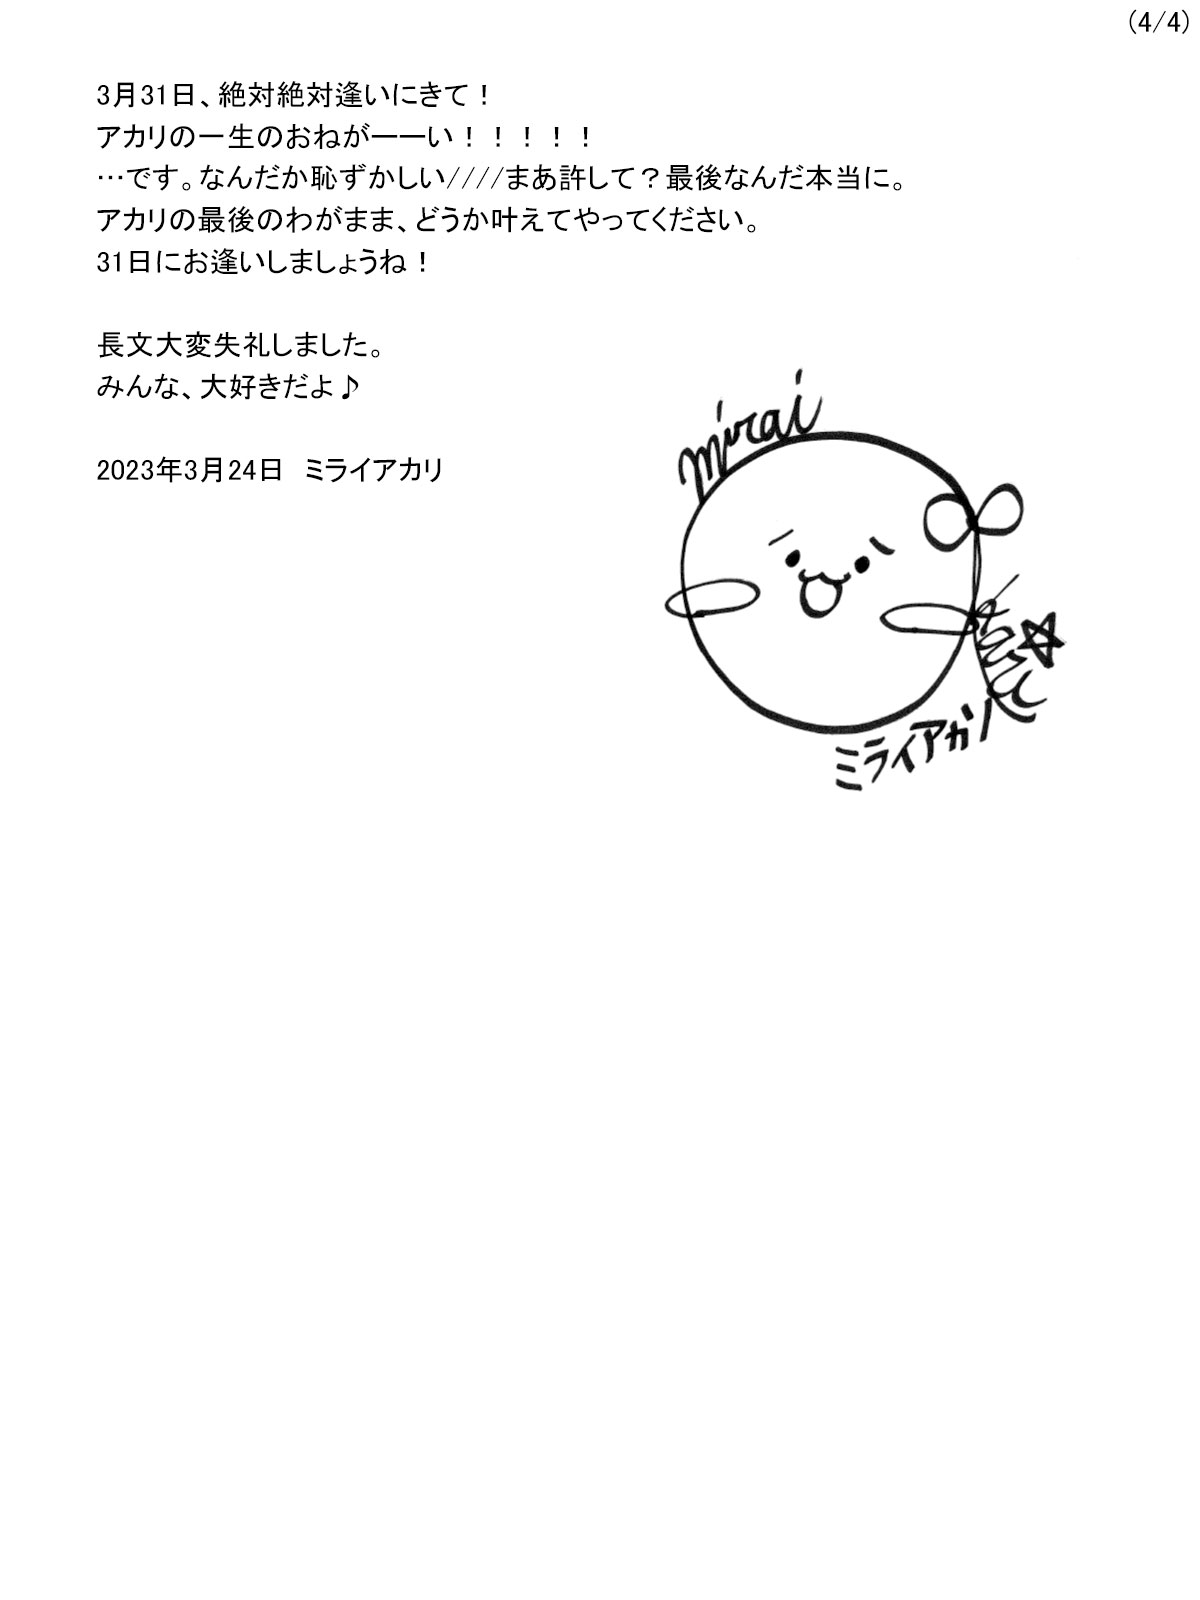 (4/4)
3月31日、絶対絶対逢いにきて！
アカリの一生のおねがーーい！！！！！
…です。なんだか恥ずかしい////まあ許して？最後なんだ本当に。
アカリの最後のわがまま、どうか叶えてやってください。
31日にお逢いしましょうね！
長文大変失礼しました。
みんな、大好きだよ♪
2023年3月24日　ミライアカリ
mirai
Akari
ミライアカリ